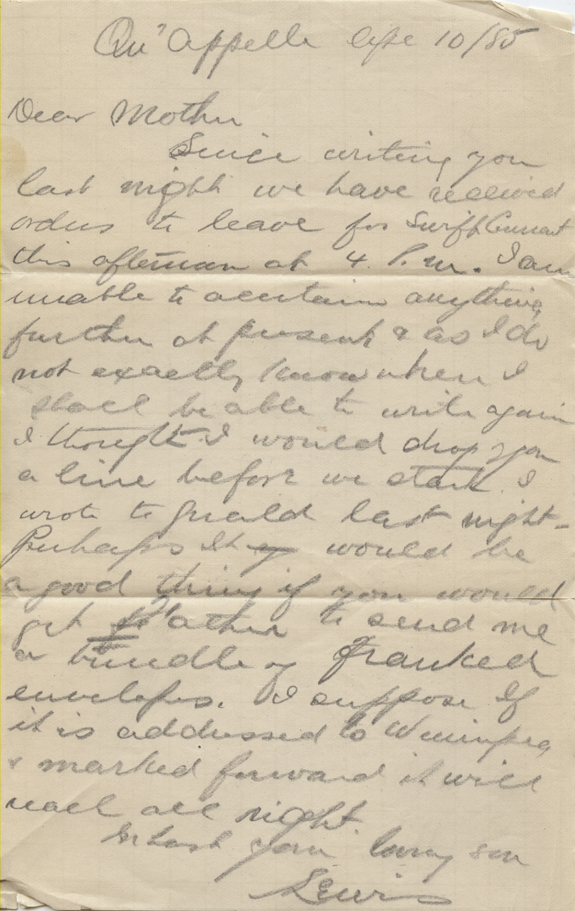 Qu'Appelle 10/85
Dear Mother
Since writing you
last night we have received
orders to leave for Swift Currant
this afternoon at 4. P.m. I am
unable to ascertain anything
further at present & as I do
not exactly know when I
shall be able to write again
I thought I would drop you
a line before we start. I
wrote to last night-
Perhaps it would be
a good thing if you would
get Father to send me
a bundle of franked
envelopes. I suppose if
it is addressed to Winnipeg
& marked forward it will
reach all right.
In haste your loving son
Lewis